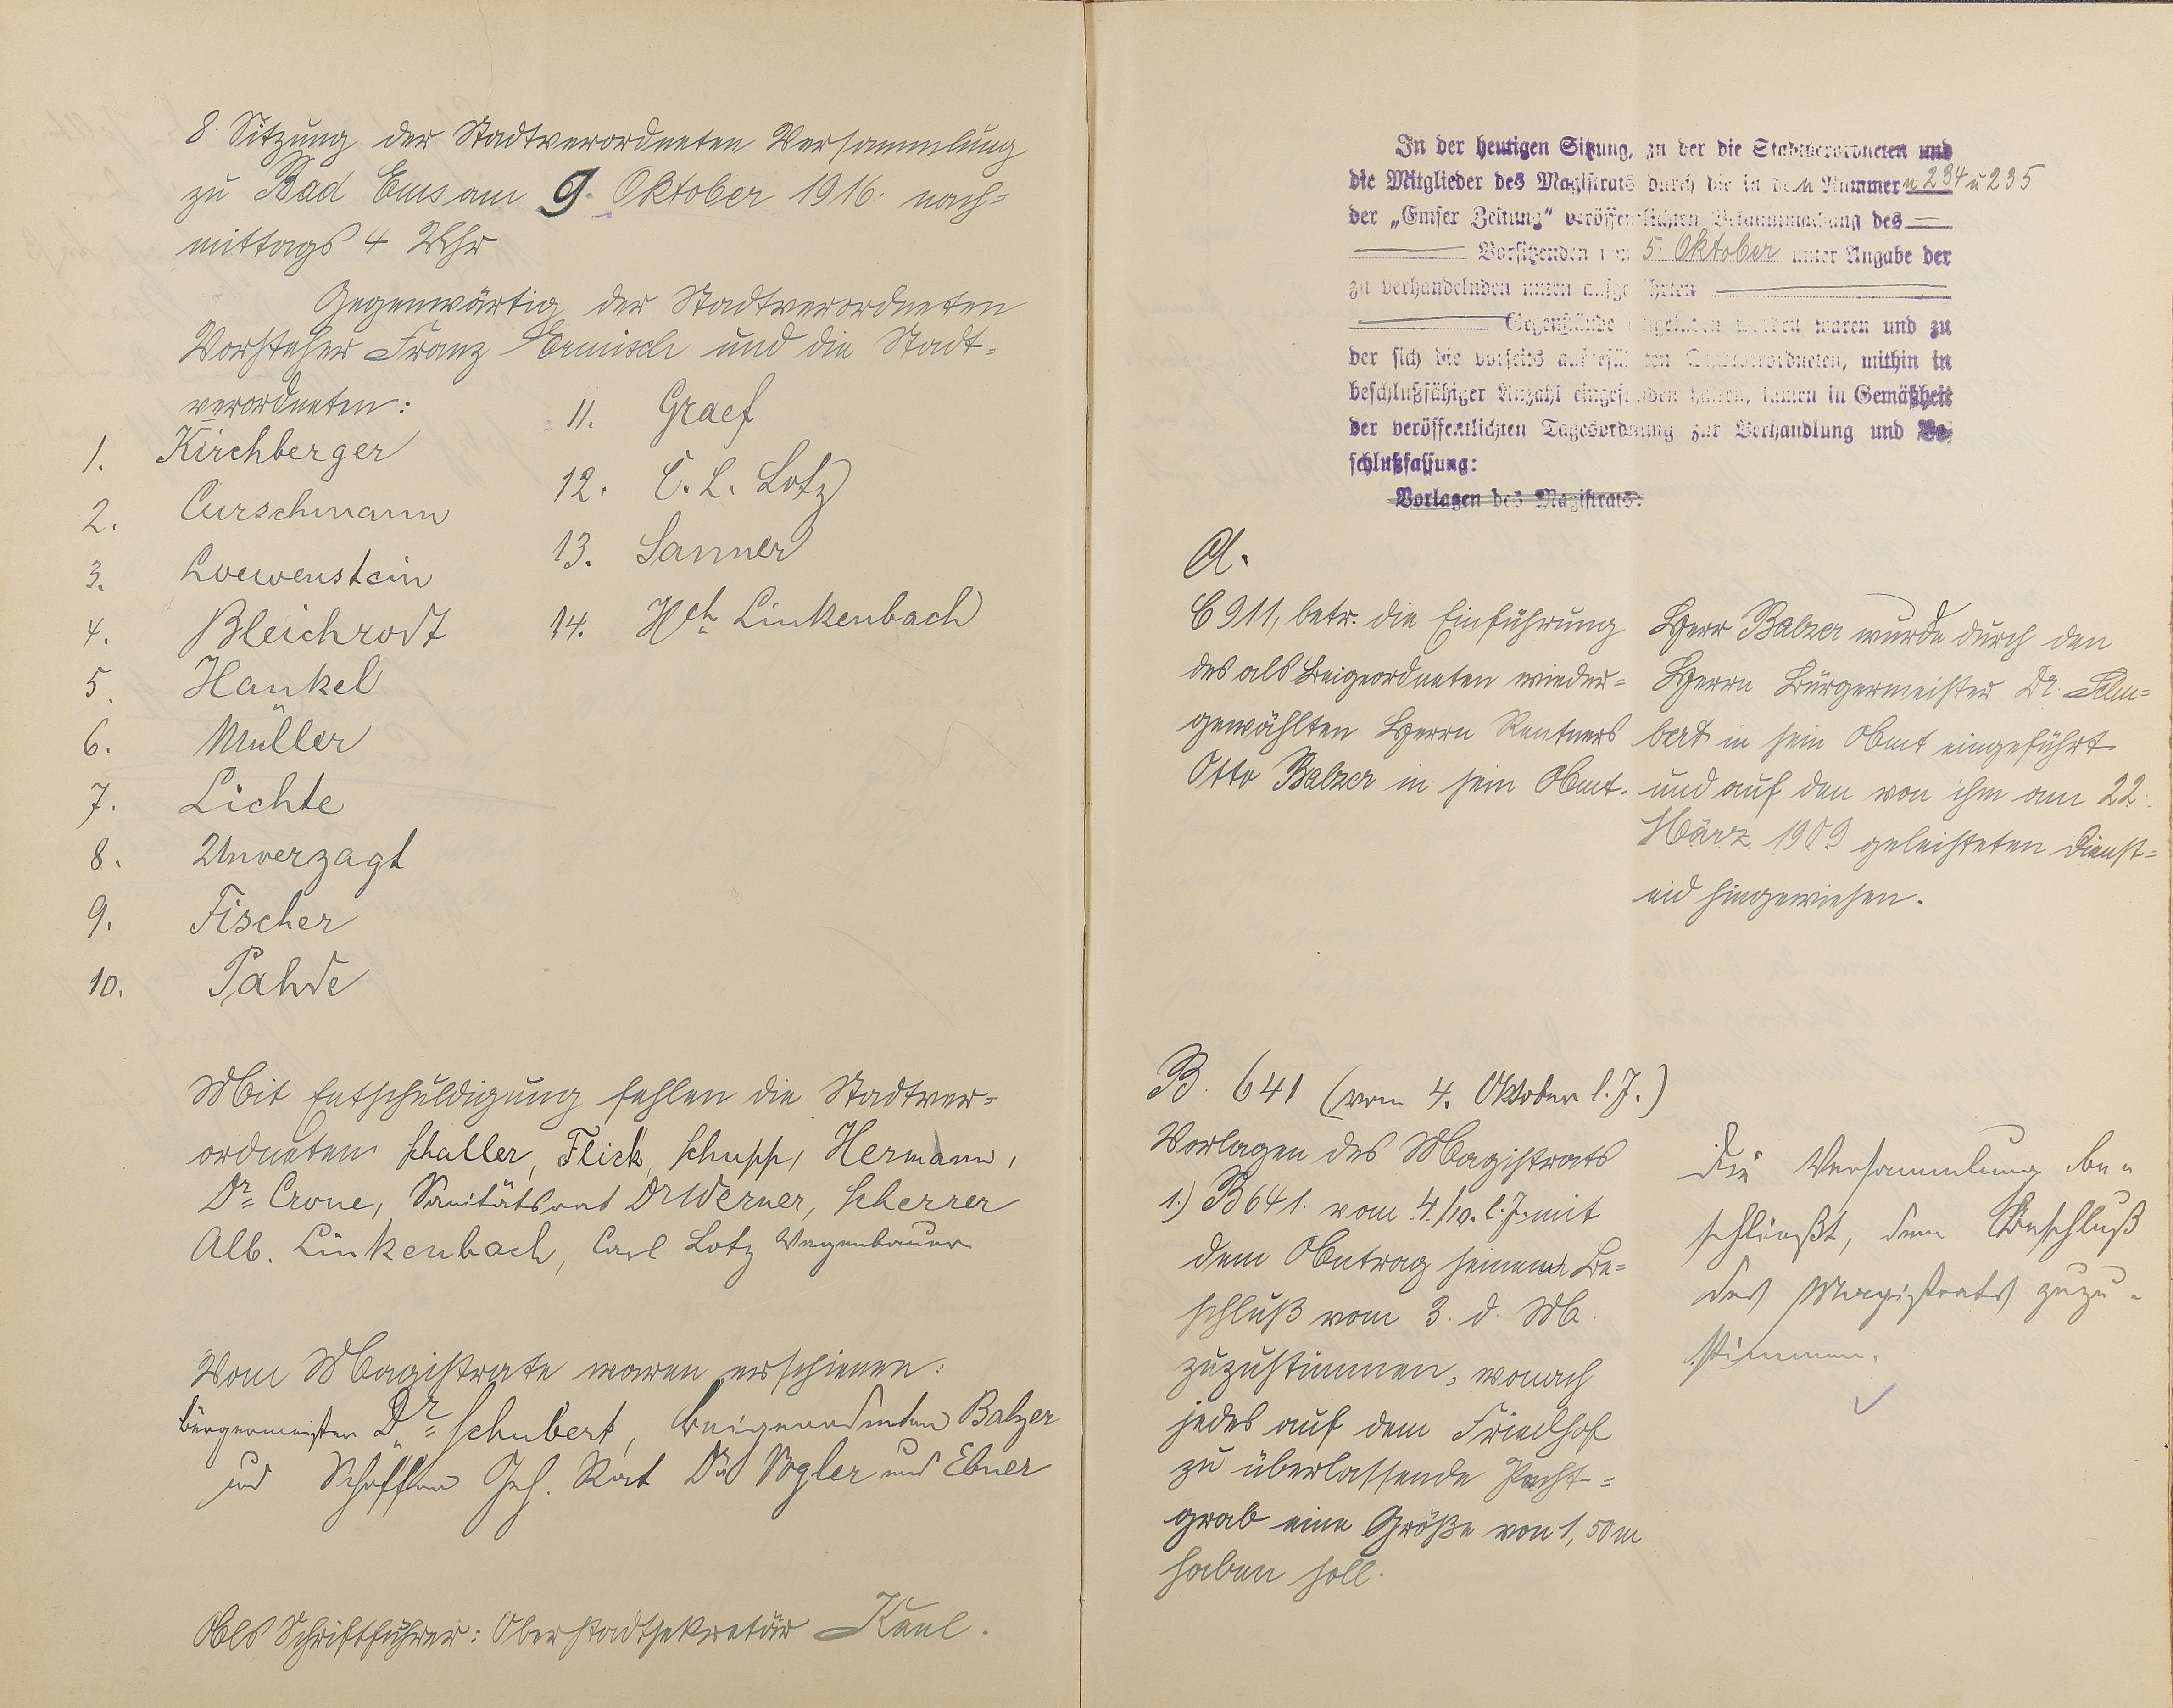 8. Sitzung der Stadtverordneten Versammlung
zu Bad Ems am 9. Oktober 1916. nach=
mittags 4 Uhr
Gegenwärtig der Stadtverordneten
Vorsteher Franz Ermisch und die Stadt=
verordneten:
1. Kirchberger
2. Curschmann
3. Loewenstein
4. Bleichrodt
5. Hankel
6. Müller
7. Lichte
8. Unverzagt
9. Fischer
10. Pahde
11. Graef
12. C. L. Lotz
13. Sanner
14. Hch Linkenbach
Mit Entschuldigung fehlen die Stadtver=
ordneten Schaller, Flick, Schupp, Hermann,
Dr. Crone, Sanitätsrat Dr Werner, Scherrer
Alb. Linkenbach, Carl Lotz Wagenbauer
Vom Magistrate waren erschienen:
Bürgermeister Dr. Schubert, Beigeordneten Balzer
und Schöffen Geh. Rat Dr Vogler und Ebner
Als Schriftführer: Oberstadtsekretär Kaul.
In der heutigen Sitzung, zu der die Stadtverordneten und
die Mitglieder des Magistrats durch die in den Nummern 234 u 235
der „Emser Zeitung“ veröffentlichten Bekanntmachung des
Vorsitzenden vom 5. Oktober unter Angabe der
zu verhandelnden unten aufgeführten
Gegenstände eingeladen worden waren und zu
der sich die vorseits aufgeführten Stadtverordneten, mithin in
beschlußfähiger Anzahl eingefunden hatten, kamen in Gemäßheit
der veröffentlichten Tagesordnung zur Verhandlung und Be-
schlußfassung:
Vorlagen des Magistrats:
A.
C 911, betr. die Einführung
des als Beigeordneten wieder=
gewählten Herrn Rentners
Otto Balzer in sein Amt.
Herr Balzer wurde durch den
Herrn Bürgermeister Dr. Schu=
bert in sein Amt eingeführt
und auf den von ihm am 22.
März 1909 geleisteten Dienst=
eid hingewiesen.
B. 641 (vom 4. Oktober l. J.)
Vorlagen des Magistrats
1.) B 641. vom 4./10. l. J. mit
dem Antrag seinem Be=
schluß vom 3. d. M.
zuzustimmen, wonach
jedes auf dem Friedhof
zu überlassende Pacht=
grab eine Größe von 1,50 m
haben soll.
Die Versammlung be=
schließt, dem Beschluß
des Magistrats zuzu-
stimmen.